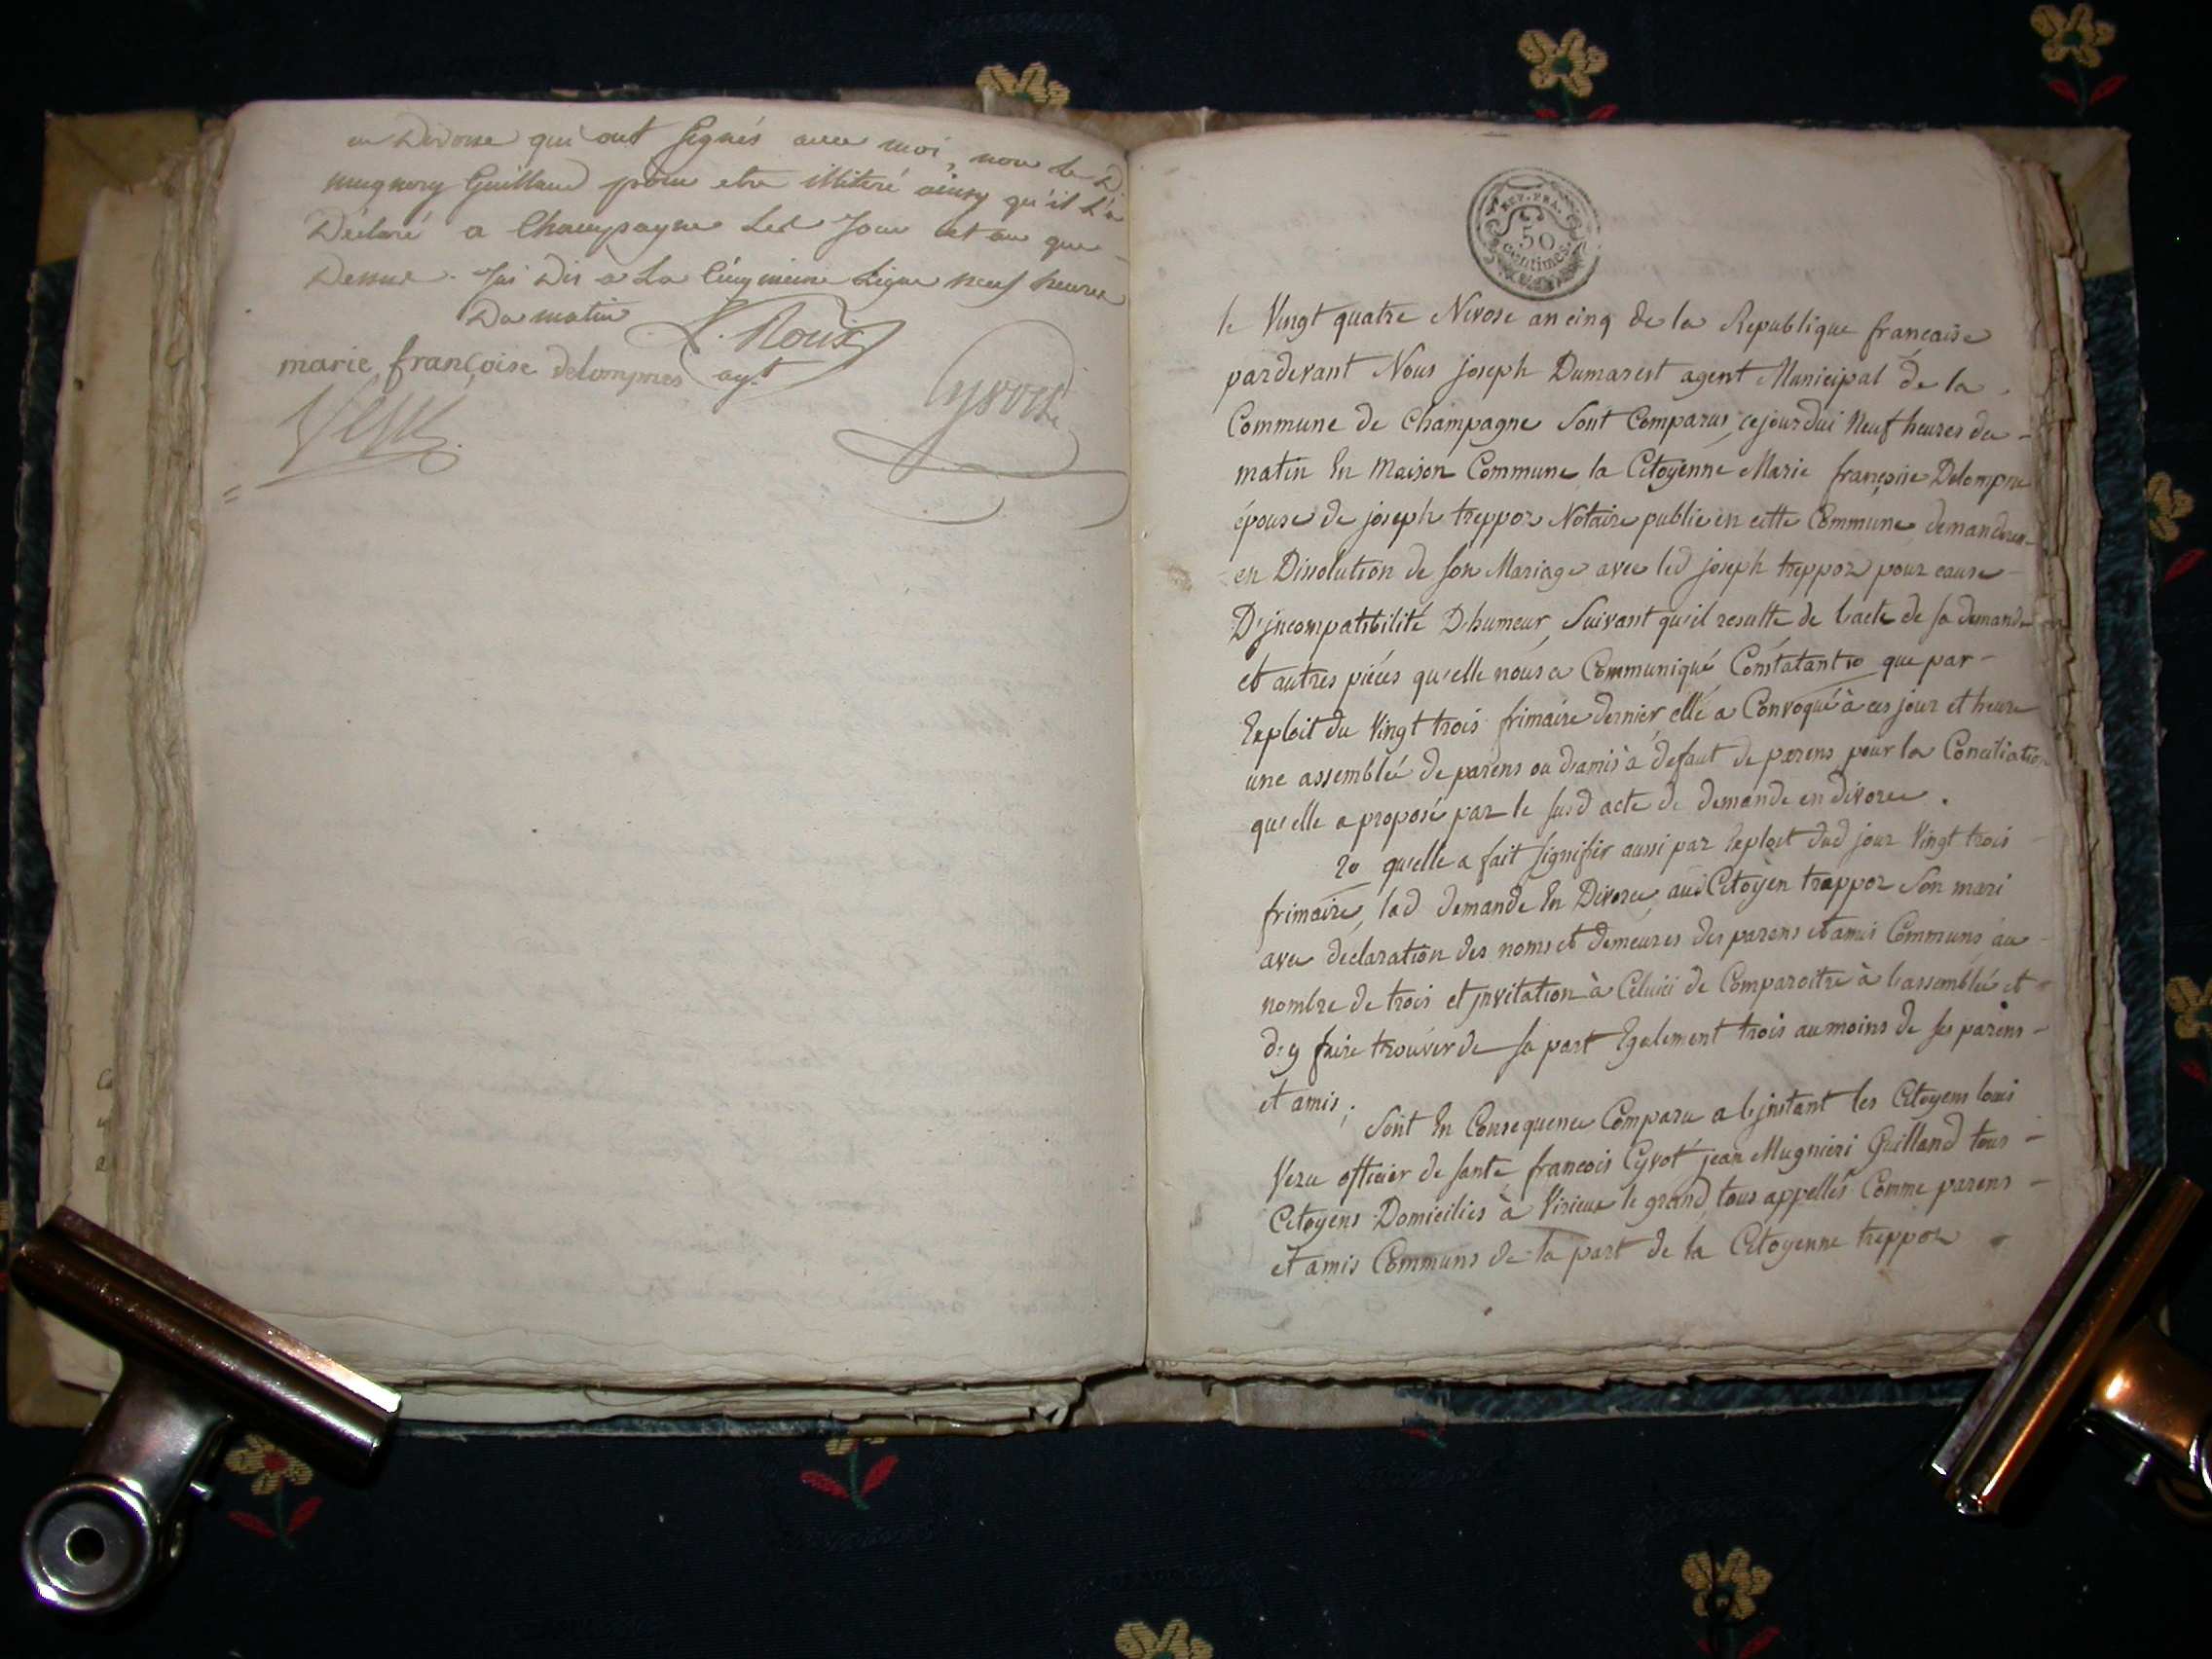 en Divorce qui ont signés avec moi, non le D
mugnery Guilland pour etre illiteré ainsy qu'il l'a
Déclaré a Champagne led Jour et an que
Dessus. Jai Dis a La Cinquieme Ligne neuf heures
Du matin
Roux
marie françoise delompnes agt
Cyvoct
REP. FRA.
50
Centimes.
le Vingt quatre Nivose an cinq de la Republique francaise
pardevant Nous joseph Dumarest agent Municipal de la
Commune de Champagne Sont Comparus, cejourdui Neuf heures du -
matin En Maison Commune la Citoyenne Marie françoise Delompne
épouse de joseph treppoz Notaire public en cette Commune demanderesse
en Dissolution de son Mariage avec led joseph treppoz pour cause -
D'jncompatibilité D'humeur, Suivant qu'il resulte de l'acte de sa demande
et autres piéces qu'elle nous a Communiqué Constatant 1o que par -
Exploit du Vingt trois frimaire dernier, elle a Convoqué à ces jour et heure
une assemblée de parens ou d'amis à defaut de parens pour la Conciliation
qu'elle a proposé par le susd acte de demande en divorce.
2o qu'elle a fait signifier aussi par Exploit dud jour Vingt trois -
frimaire, lad demande En Divorce aud Citoyen treppoz Son mari
avec declaration des noms et demeures des parens et amis Communs au -
nombre de trois et jnvitation à Celuici de Comparoitre à l'assemblée et -
d'y faire trouver de sa part Egalement trois au moins de ses parens -
et amis;
Sont En Consequence Comparu a l'jnstant les Citoyens louis
Vezu officier de santé, francois Cyvot jean Mugnieri Guilland tous -
Citoyens Domiciliés à Virieux le grand, tous appellés Comme parens -
et amis Communs de la part de la Citoyenne treppoz